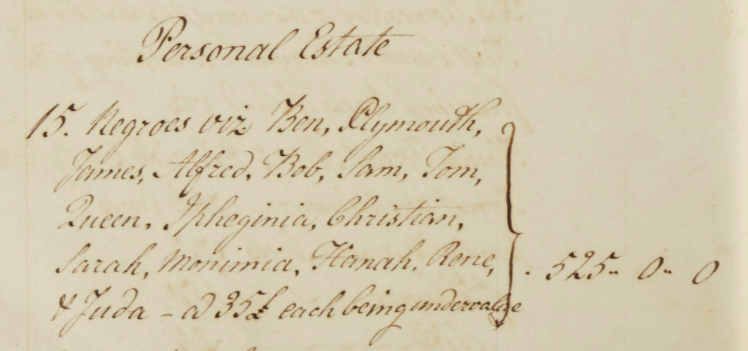 Personal Estate
15. Negroes viz Ben, Plymouth,
James, Alfred, Bob, Sam, Tom,
Queen, Ipheginia, Christian,
Sarah, Monimia, Hanah, Rene,
& Juda - @ 35£ each being undervalue
525 " 0 " 0